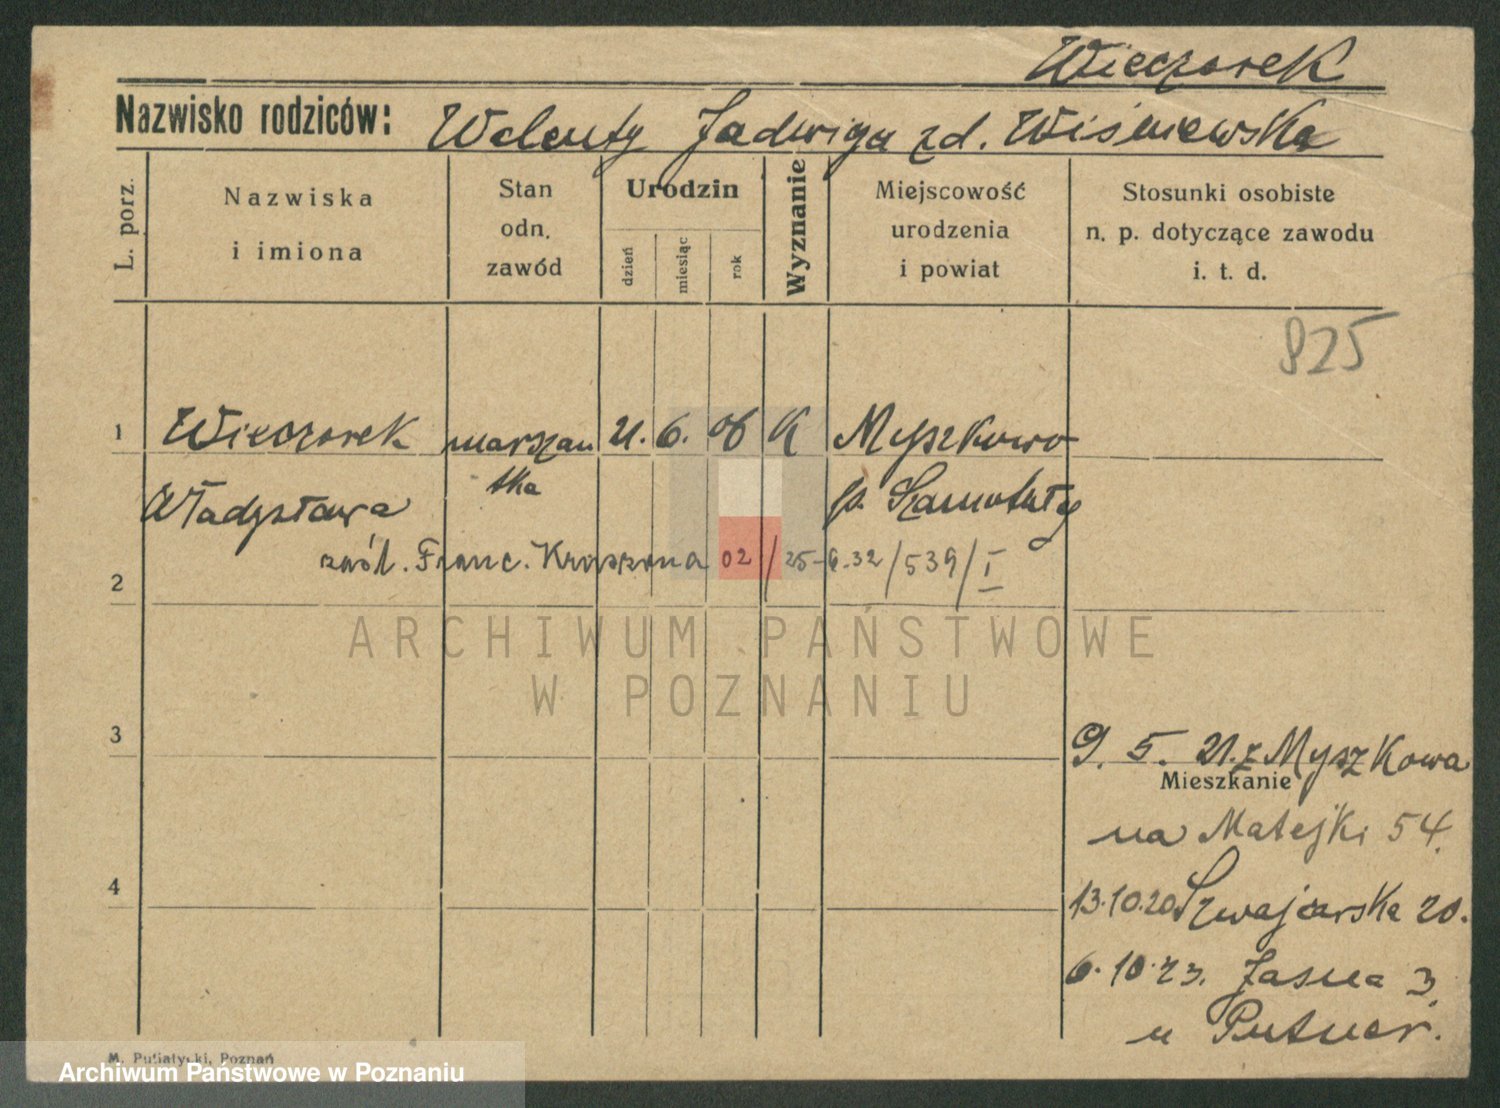 Wieczorek
Nazwisko rodziców: Walenty Jadwiga zd. Wiśniewska
L. porz.
Nazwiska
i imiona
Stan
odn.
zawód
Urodzin
dzień
miesiąc
rok
Wyznanie
Miejscowość
urodzenia
i powiat
Stosunki osobiste
n. p. dotyczące zawodu
i. t. d.
825
1 Wieczorek marszan 21. 6. 06 K Myszkowo
tka
Władysława p. Szamotuły
zaśl. Franc. Kroszona 02 / 25-6.32 / 539 / I
2
ARCHIWUM PAŃSTWOWE
W POZNANIU
3
9. 5. 21. z Myszkowa
Mieszkanie
na Matejki 54.
4
13.10.20 Szwajcarska 20.
6.10.23. Jasna 3.
u Putner.
M. Putiatycki, Poznań
Archiwum Państwowe w Poznaniu